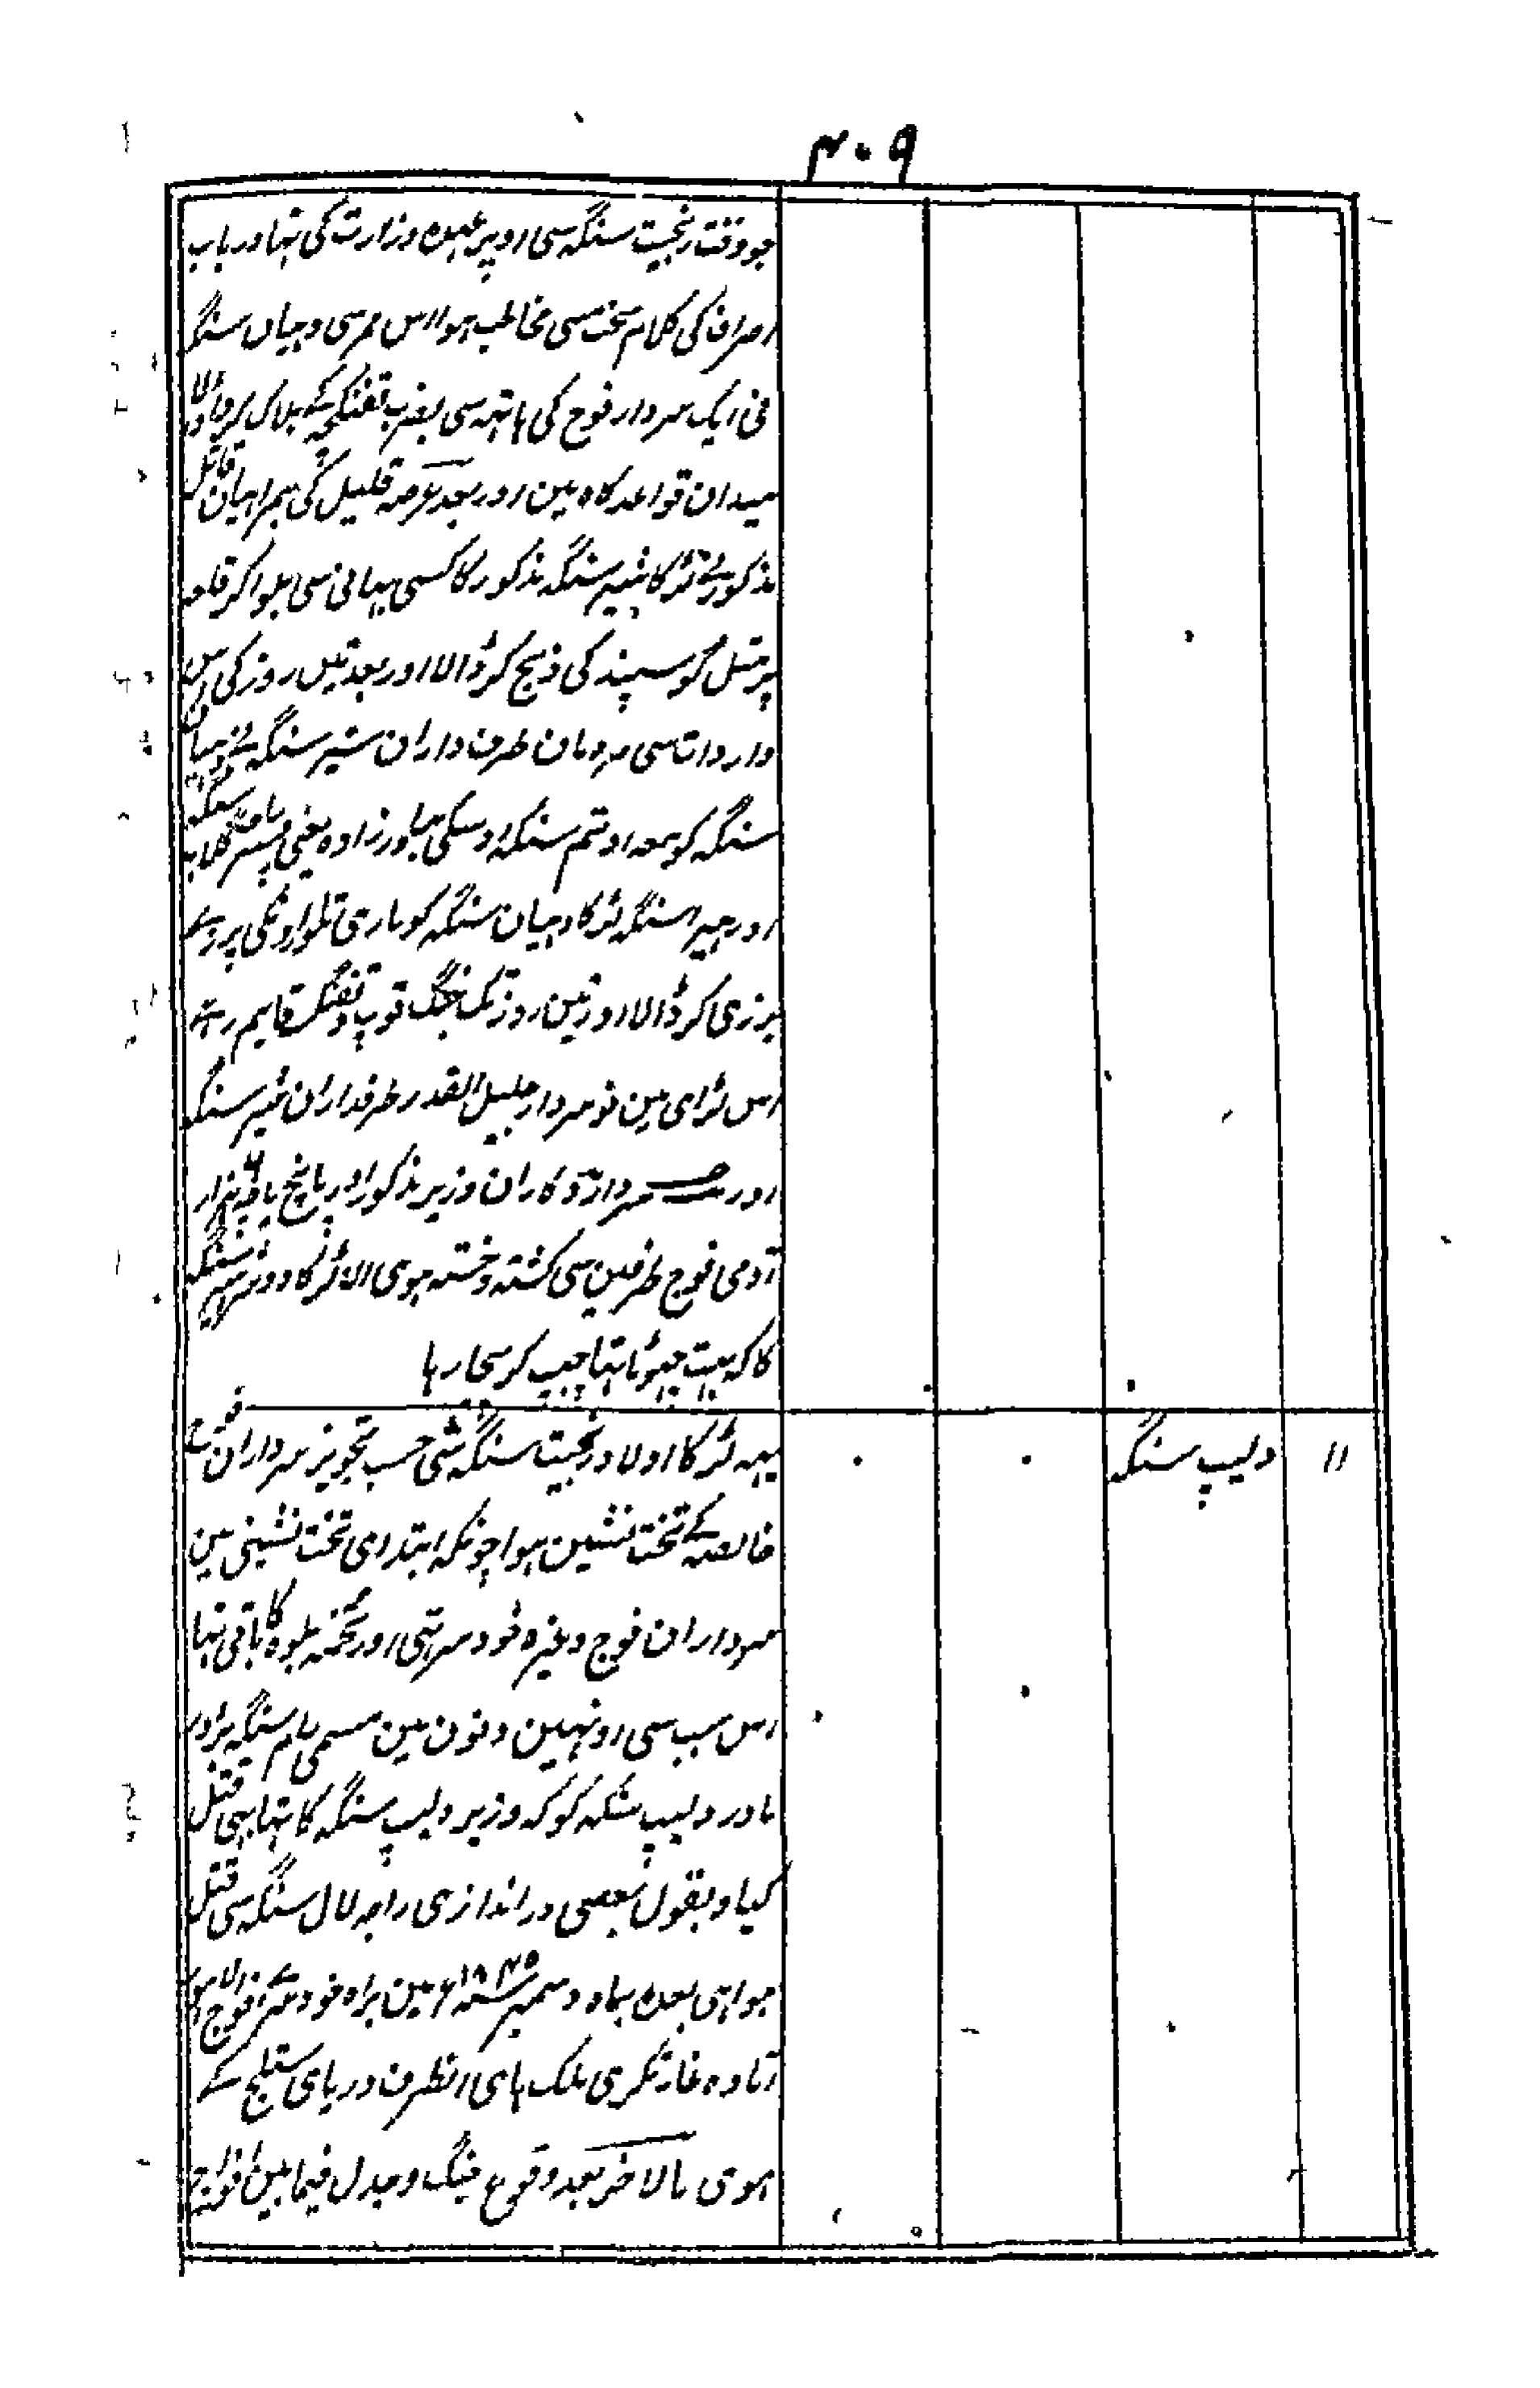 ۳۰۹
جو وقت رنجیت سنگہ سی اوپر عہدہ وزارت کی تہا درباب
اصراف کی کلام سخت سی مخاطب ہوا اس امر سی دہیان سنگہ
نی ایک سردار فوج کی ہاتہہ سی بضرب تفنگچہ کے ہلاک کروا ڈالا
میدان قواعد گاہ مین اور بعد عرصہ قلیل کی ہمراہیان قاتل
مذکور نے لڑکا شیر سنگہ مذکور کا کسی بہانی سی بلوا کر قلعہ
پر مثل گوسپند کی ذبح کر ڈالا اور بعد تین روز کی اس
واردات سی مردمان طرف داران شیر سنگہ نے دہیان
سنگہ کو معہ اوتم سنگہ اوسکی برادر زادہ یعنی پسر گلاب سنگہ
اور ہیرا سنگہ لڑکا دہیان سنگہ کو ماری تلوارونکی پرزے
پرزی کر ڈالا اور تین روز تک جنگ توپ و تفنگ قایم رہی
اس لڑای مین نو سردار جلیل القدر طرفداران شیر سنگہ
اور سردار و کاران وزیر مذکور اور پانچ یا ۶ ہزار
آدمی فوج طرفین سی کشتہ و خستہ ہوی الا لڑکا دوم شیر سنگہ
کا کہ بہت چہوٹا تہا چہپ کر بچا رہا
۱۱ دلیپ سنگہ ۰ ۰ یہہ لڑکا اولاد رنجیت سنگہ سی حسب تجویز سرداران فوج
خالصہ کے تخت نشین ہوا چونکہ ابتدای تخت نشینی مین
سرداران فوج وغیرہ خود سر تہی اور تخمہ بلوہ کا باقی تہا
اس سبب سی اونہین دنون مین مسمی نام سنگہ برادر
مادر دلیپ سنگہ کو کہ وزیر دلیپ سنگہ کا تہا بہی قتل
کیا و بقول بعضی در اندازی راجہ لال سنگہ سی قتل
ہوا بہی بعدہ بماہ دسمبر سنہ ۱۸۴۵ع مین براہ خود سری فوج لاہور
آمادہ غارتگری ملک ہای اینطرف دریای ستلج کے
ہوی بالاخر بعد وقوع جنگ و جدل فیمابین افواج